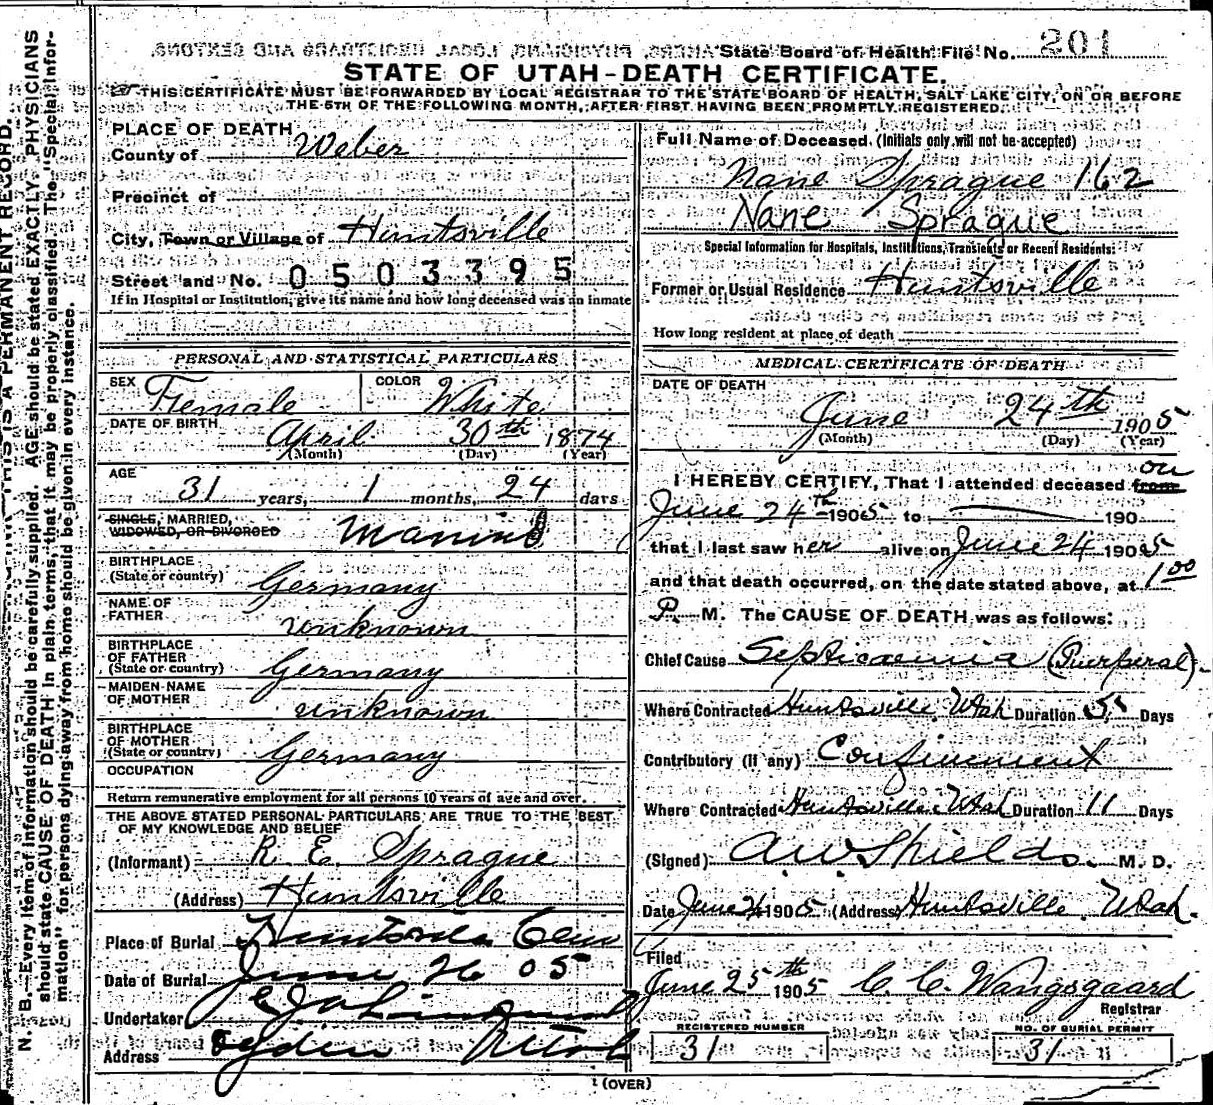 State Board of Health File No. 201
STATE OF UTAH-DEATH CERTIFICATE.
THIS CERTIFICATE MUST BE FORWARDED BY LOCAL REGISTRAR TO THE STATE BOARD OF HEALTH, SALT LAKE CITY, ON OR BEFORE
THE 5TH OF THE FOLLOWING MONTH, AFTER FIRST HAVING BEEN PROMPTLY REGISTERED.
PLACE OF DEATH
County of Weber
Precinct of
City, Town or Village of Huntsville
Street and No. 0503395
If in Hospital or Institution, give its name and how long deceased was an inmate
PERSONAL AND STATISTICAL PARTICULARS
SEX Female COLOR White
DATE OF BIRTH April 30th 1874
(Month) (Day) (Year)
AGE 31 years, 1 months, 24 days
SINGLE, MARRIED,
WIDOWED, OR DIVORCED Married
BIRTHPLACE
(State or country) Germany
NAME OF
FATHER unknown
BIRTHPLACE
OF FATHER
(State or country) Germany
MAIDEN NAME
OF MOTHER unknown
BIRTHPLACE
OF MOTHER
(State or country) Germany
OCCUPATION
Return remunerative employment for all persons 10 years of age and over.
THE ABOVE STATED PERSONAL PARTICULARS ARE TRUE TO THE BEST
OF MY KNOWLEDGE AND BELIEF
(Informant) R. E. Sprague
(Address) Huntsville
Place of Burial Huntsville Cem
Date of Burial June 26 05
Undertaker
Address Ogden Utah
Full Name of Deceased (Initials only will not be accepted)
Nane Sprague 162
Nane Sprague
Special Information for Hospitals, Institutions, Transients or Recent Residents:
Former or Usual Residence Huntsville
How long resident at place of death
MEDICAL CERTIFICATE OF DEATH
DATE OF DEATH
June 24th 1905
(Month) (Day) (Year)
I HEREBY CERTIFY, That I attended deceased from on
June 24th 1905 to 190
that I last saw her alive on June 24 1905
and that death occurred, on the date stated above, at 1 00
P. M. The CAUSE OF DEATH was as follows:
Chief Cause Septicaemia (Puerperal).
Where Contracted Huntsville, Utah Duration 5 Days
Contributory (if any) Confinement
Where Contracted Huntsville, Utah Duration 11 Days
(Signed) A. W. Shields. M. D.
Date June 24 1905 (Address) Huntsville, Utah.
Filed
June 25th 1905 C. C. Wangsgaard
Registrar
REGISTERED NUMBER
31
NO. OF BURIAL PERMIT
31
(OVER)
N. B.—Every item of information should be carefully supplied. AGE should be stated EXACTLY. PHYSICIANS
should state CAUSE OF DEATH in plain terms, that it may be properly classified. The "Special Infor-
mation" for persons dying away from home should be given in every instance.
THIS IS A PERMANENT RECORD.